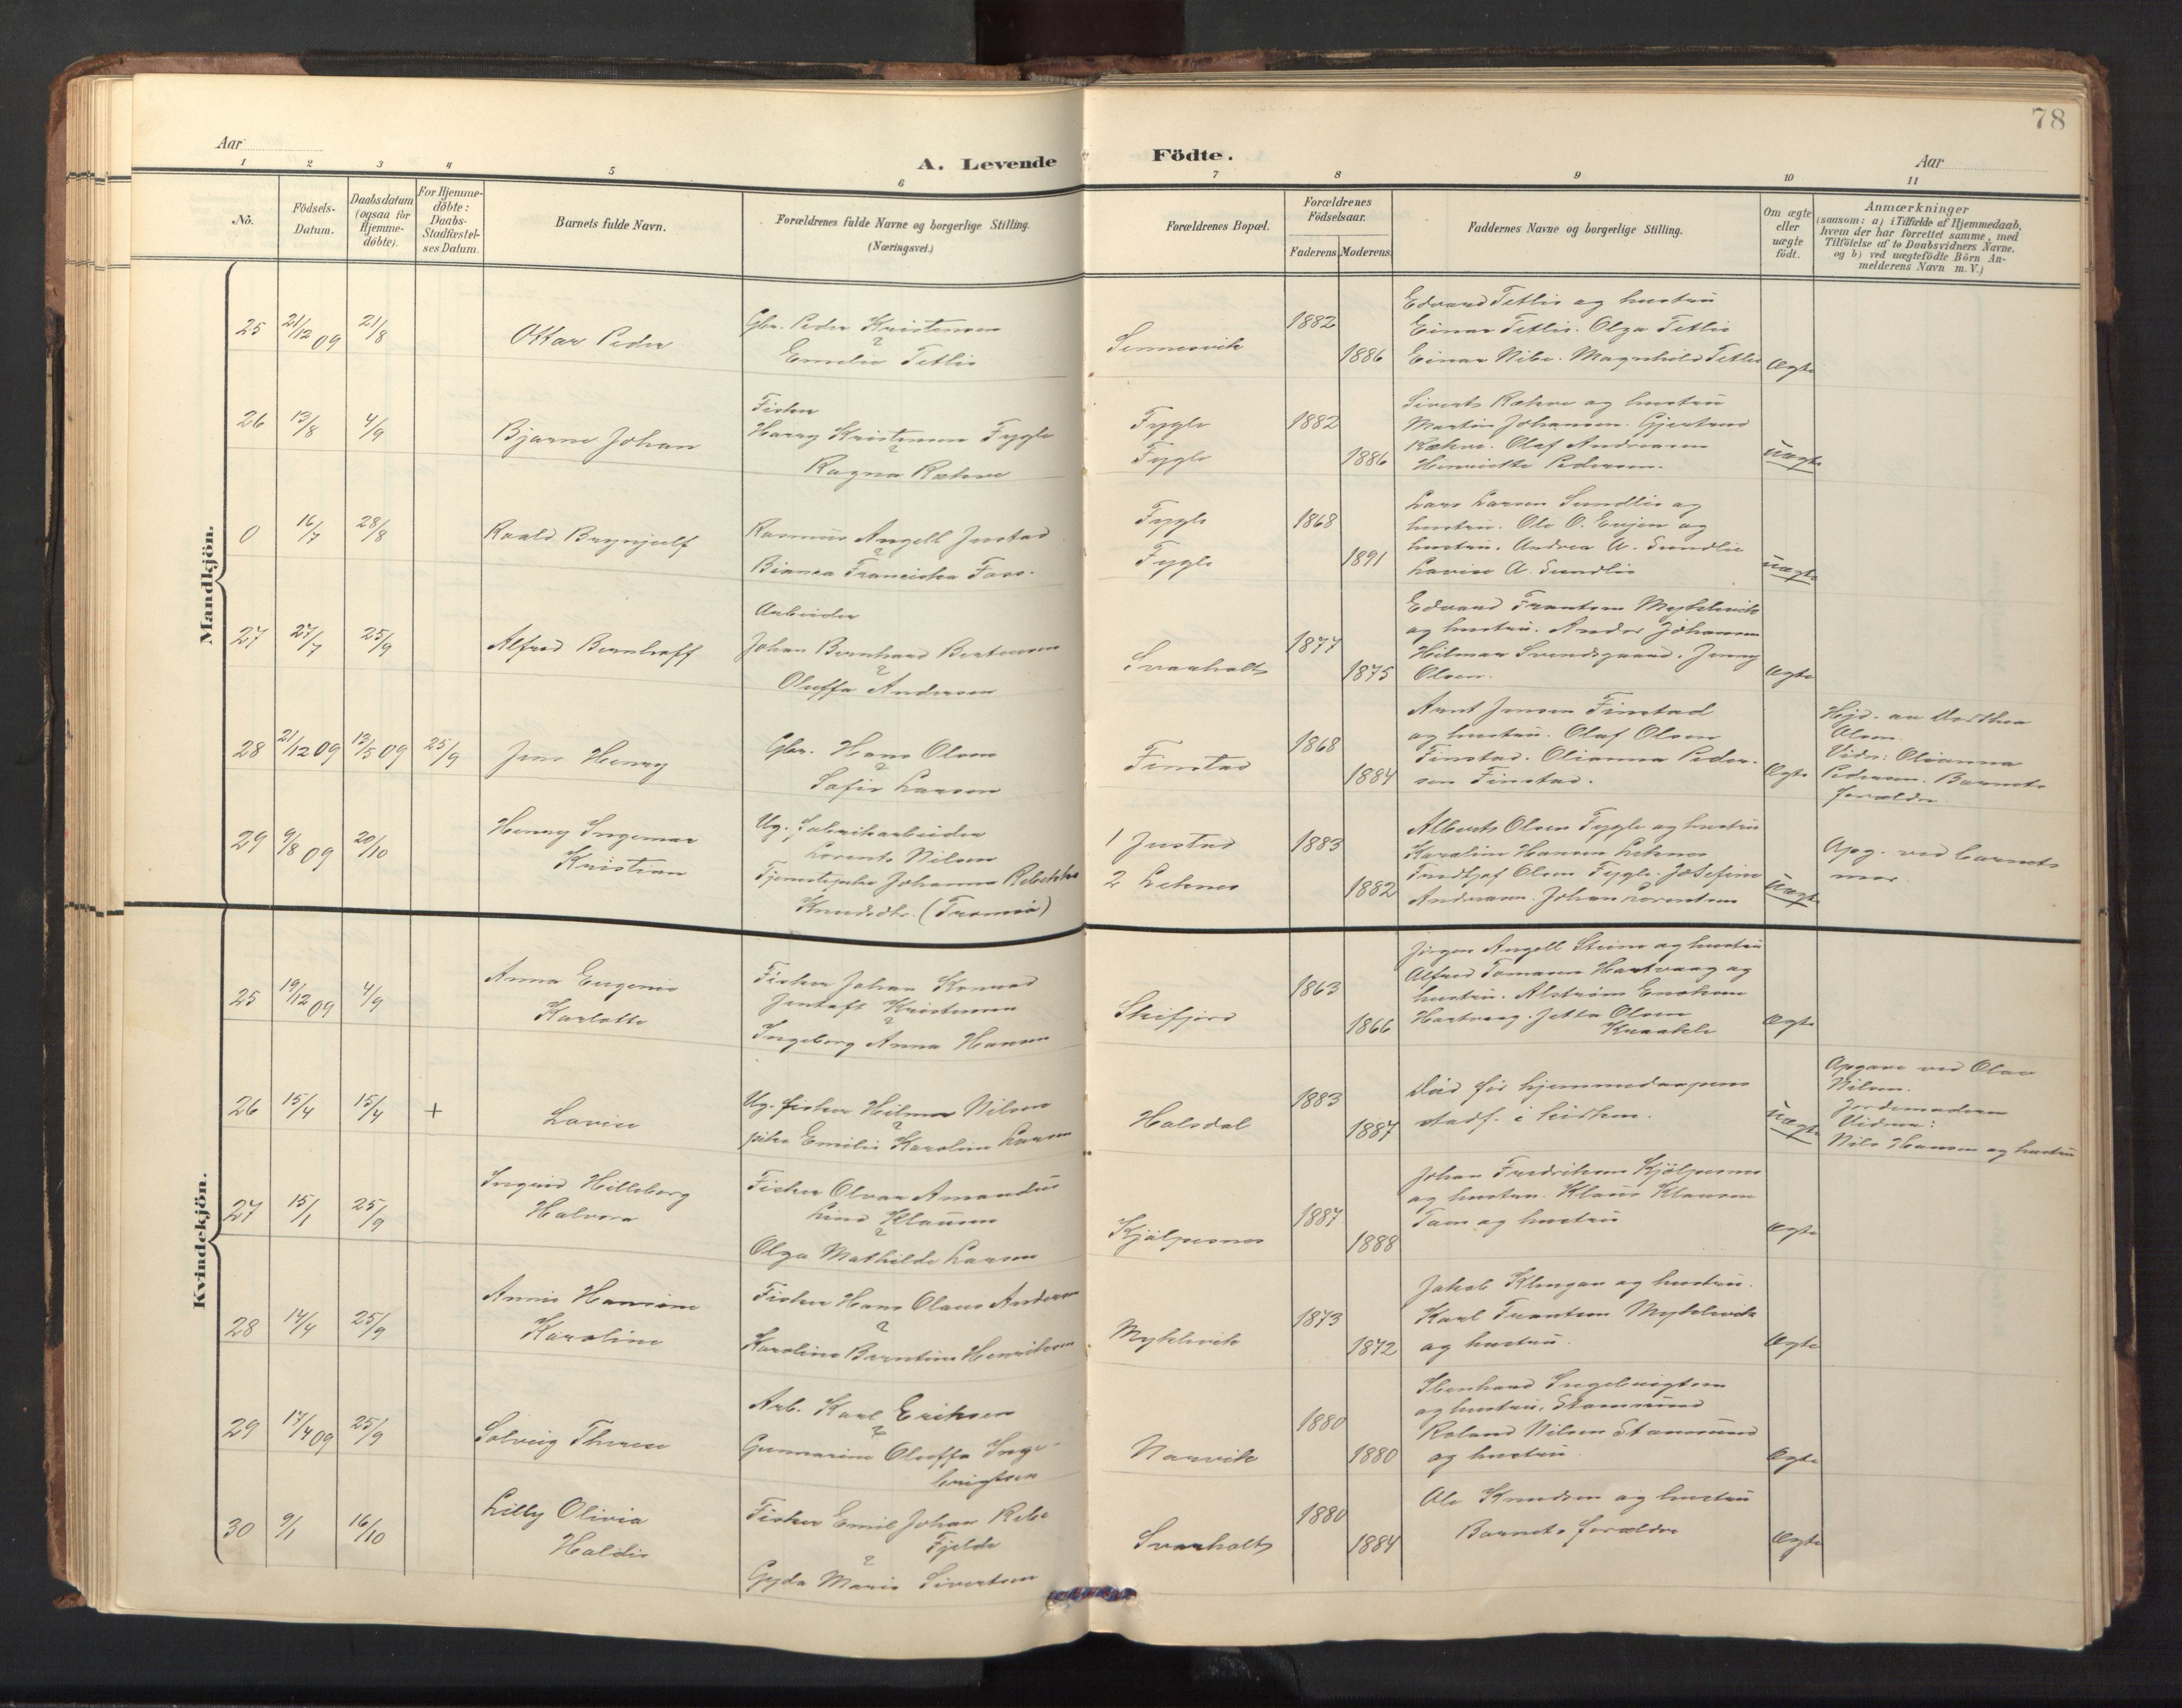 78
Aar
A. Levende
Födte.
Aar
1 2 3 4 5 6 7 8 9 10 11
No.
Födsels-
Datum.
Daabsdatum
(ogsaa for
Hjemme-
döbte).
For Hjemme-
döbte:
Daabs-
Stadfæstel-
ses Datum.
Barnets fulde Navn.
Forældrenes fulde Navne og borgerlige Stilling.
(Næringsvei.)
Forældrenes Bopæl.
Forældrenes
Födselsaar.
Faderens. Moderens.
Faddernes Navne og borgerlige Stilling.
Om ægte
eller
uægte
födt.
Anmærkninger
(saasom: a) i Tilfælde af Hjemmedaab,
hvem der har forrettet samme, med
Tilföielse af to Daabsvidners Navne.
og b) ved uægtefödte Börn An-
melderens Navn m. V.)
Mandkjön.
25 21/12 09 21/8
Ottar Peder
Gbr. Peder Kristensen
&
Emelie Tetlie
Sennesvik
1882
1886
Edvard Tetlie og hustru
Einar Tetlie. Olga Tetlie
Einar Nibe. Magnhild Tetlie
Ægte
26 13/8 4/9
Bjarne Johan
Fisker
Harry Kristensen Fygle
&
Ragna Rækve
Fygle
Fygle
1882
1886
Sivert Rækve og hustru
Martin Johansen. Gjertrud
Rækve. Olaf Andreassen
Henriette Pedersen.
Uægte
0 16/7 28/8
Roald Brynjulf
Rasmus Angell Justad
&
Bianca Franciska Foss.
Fygle
Fygle
1868
1891
Lars Larsen Sundlie og
hustru. Ole O. Evjen og
hustru. Andrea A. Sundlie
Lovise A. Sundlie
Uægte
27 27/7 25/9
Alfred Bernhoff
Arbeider
Johan Bernhard Berntsen
&
Oluffa Andersen
Svarholt
1877
1875
Edvard Frantsen Myklevik
og hustru. Andor Johansen
Hilmar Svendsgaard. Jenny
Olsen.
Ægte
28 21/12 09 13/5 09 25/9
Jens Henry
Gbr. Hans Olsen
&
Sofie Larsen
Finstad
1868
1884
Arnt Jensen Finstad
og hustru. Olaf Olsen
Finstad. Olianna Peder-
sen Finstad.
Ægte
Hjd. av Dorthea
Olsen.
Vidn: Olianna
Pedersen. Barnets
forældre.
29 9/8 09 20/10
Henry Ingemar
Kristian
Ug. fabrikarbeider
Lorents Nilsen
Tjenestepike Johanna Rebekka
Knudsdtr. (Tromsø)
1 Justad
2 Leknes
1883
1882
Alberts Olsen Fygle og hustru
Karoline Hansen Leknes
Fredtjof Olsen Fygle. Josefine
Andersen. Johan Lorentsen
Uægte
Opg. ved barnets
mor.
Kvindekjön.
25 19/12 09 4/9
Anna Eugenie
Karlotte
Fisker Johan Konrad
Jentoft Kristensen
&
Ingeborg Anna Hansen
Skifjord
1863
1866
Jørgen Angell Steine og hustru
Alfred Tomassen Hartvaag og
hustru. Alstrøm Enoksen
Hartvaag. Jetta Olsen
Knaakele
Ægte
26 15/4 15/4 +
Lovise
Ug. fisker Hilmar Nilsen
&
pike Emilie Karoline Larsen
Halsdal
1883
1887
Død før hjemmedaapens
stadf. i kirken.
Uægte
Opgave ved Olav
Nilsen.
Jordemoderen
Vidner:
Nils Hansen og hustru
27 15/1 25/9
Ingrid Hilleborg
Halvora
Fisker Olvar Amandus
Lind Klausen
&
Olga Mathilde Larsen
Kjølpesnes
1887
1888
Johan Fredriksen Kjølpesnes
og hustru. Klaus Klausen
Tom og hustru
Ægte
28 14/4 25/9
Annie Hansine
Karoline
Fisker Hans Olaus Andersen
&
Karoline Berntine Henriksen
Myklevik
1873
1872
Jakob Klungan og hustru.
Karl Frantsen Myklevik
og hustru.
Ægte
29 17/4 09 25/9
Solveig Therese
Arb. Karl Eriksen
&
Gunnarine Oluffa Inge-
brigtsen
Narvik
1880
1880
Ibenhard Ingebrigtsen
og hustru, Stamsund
Roland Nilsen Stamsund
og hustru.
Ægte
30 9/1 16/10
Lilly Olivia
Haldis
Fisker Emil Johan Ribe
Fjelde
&
Gyda Marie Sivertsen
Svarholt
1880
1884
Ole Knudsen og hustru
Barnets forældre
Ægte